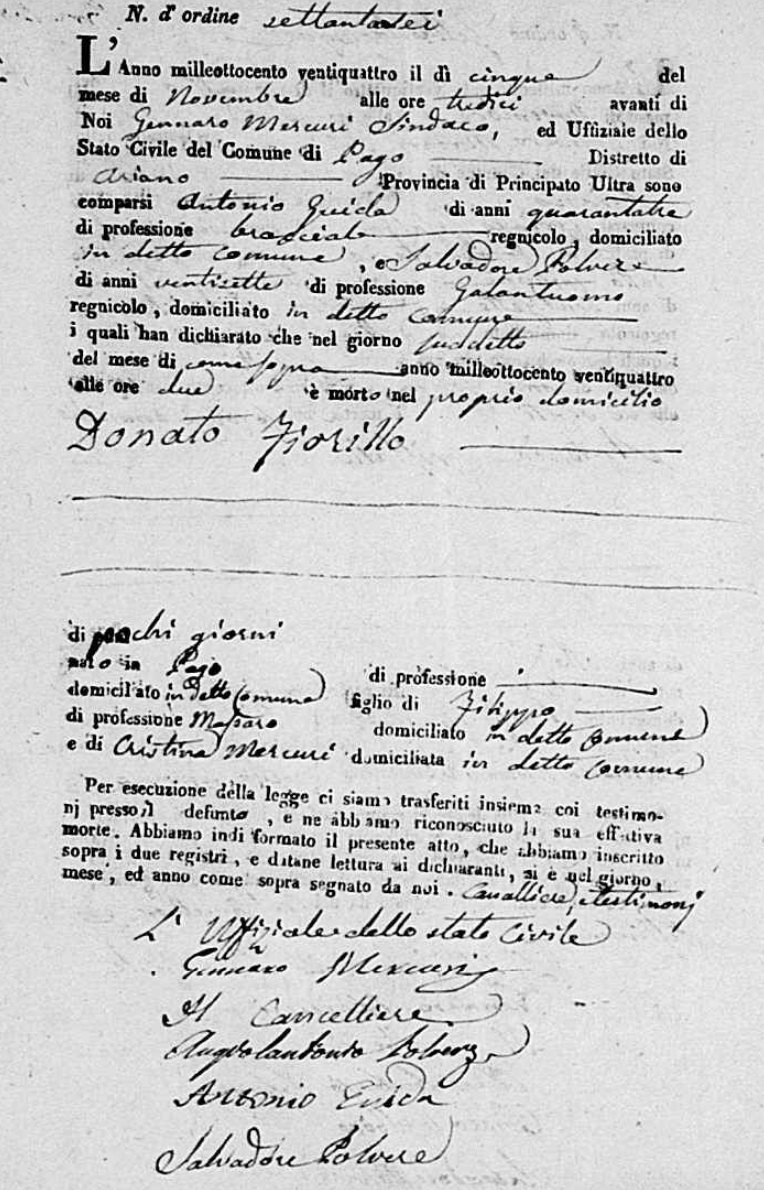 N. d' ordine settantasei
L'Anno milleottocento ventiquattro il dì cinque del
mese di Novembre alle ore tredici avanti di
Noi Gennaro Mercuri Sindaco, ed Uffiziale dello
Stato Civile del Comune di Pago Distretto di
Ariano Provincia di Principato Ultra sono
comparsi Antonio Guida di anni quarantatre
di professione bracciale regnicolo, domiciliato
in detto comune, e Salvadore Polvere
di anni ventisette di professione Galantuomo
regnicolo, domiciliato in detto comune
i quali han dichiarato che nel giorno suddetto
del mese di come sopra anno milleottocento ventiquattro
alle ore due è morto nel proprio domicilio
Donato Fiorillo
di pochi giorni
nato in Pago di professione
domiciliato in detto Comune figlio di Filippo
di professione Massaro domiciliato in detto Comune
e di Cristina Mercuri domiciliata in detto Comune
Per esecuzione della legge ci siamo trasferiti insieme coi testimo-
nj presso il defunto, e ne abbiamo riconosciuto la sua effettiva
morte. Abbiamo indi formato il presente atto, che abbiamo inscritto
sopra i due registri, e datane lettura ai dichiaranti, si è nel giorno,
mese, ed anno come sopra segnato da noi. Cancelliere, e testimonj
L' Uffiziale dello stato Civile
Gennaro Mercuri
Il Cancelliere
Angiolantonio Polvere
Antonio Guida
Salvadore Polvere